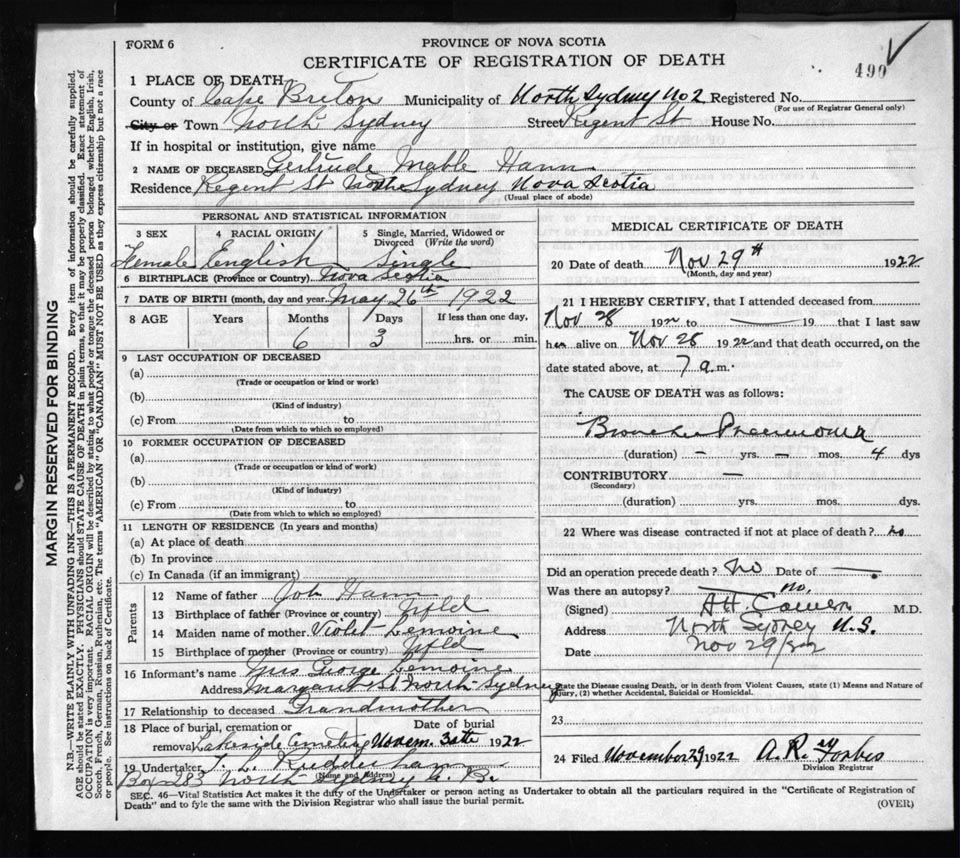 FORM 6
PROVINCE OF NOVA SCOTIA
CERTIFICATE OF REGISTRATION OF DEATH
490
1 PLACE OF DEATH
County of Cape Breton Municipality of North Sydney No 2 Registered No.
(For use of Registrar General only)
City or Town North Sydney Street Regent St House No.
If in hospital or institution, give name
2 NAME OF DECEASED Gertrude Mable Hann
Residence Regent St North Sydney Nova Scotia
(Usual place of abode)
PERSONAL AND STATISTICAL INFORMATION
3 SEX 4 RACIAL ORIGIN 5 Single, Married, Widowed or Divorced (Write the word)
Female English Single
6 BIRTHPLACE (Province or Country) Nova Scotia
7 DATE OF BIRTH (month, day and year) May 26th 1922
8 AGE Years Months Days If less than one day,
6 3 hrs. or min.
9 LAST OCCUPATION OF DECEASED
(a)
(Trade or occupation or kind or work)
(b)
(Kind of industry)
(c) From to
(Date from which to which so employed)
10 FORMER OCCUPATION OF DECEASED
(a)
(Trade or occupation or kind of work)
(b)
(Kind of industry)
(c) From to
(Date from which to which so employed)
11 LENGTH OF RESIDENCE (In years and months)
(a) At place of death
(b) In province
(c) In Canada (if an immigrant)
Parents
12 Name of father Job Hann
13 Birthplace of father (Province or country) Nfld
14 Maiden name of mother Violet Lemoine
15 Birthplace of mother (Province or country) Nfld
16 Informant's name Mrs George Lemoine
Address Margaret St North Sydney
17 Relationship to deceased Grandmother
18 Place of burial, cremation or removal Lakeside Cemetery Date of burial Novem. 30th 1922
19 Undertaker
(Name and Address)
Box 283 North Sydney C. B.
MEDICAL CERTIFICATE OF DEATH
20 Date of death Nov 29th 1922
(Month, day and year)
21 I HEREBY CERTIFY, that I attended deceased from
Nov 28 1922 to 19 that I last saw
her alive on Nov 28 1922 and that death occurred, on the
date stated above, at 7 a.m.
The CAUSE OF DEATH was as follows:
Broncho Pneumonia
(duration) – yrs. – mos. 4 dys
CONTRIBUTORY —
(Secondary)
(duration) yrs. mos. dys.
22 Where was disease contracted if not at place of death? no
Did an operation precede death? No Date of —
Was there an autopsy? no.
(Signed) M.D.
Address North Sydney N.S.
Date Nov 29/22
State the Disease causing Death, or in death from Violent Causes, state (1) Means and Nature of
Injury, (2) whether Accidental, Suicidal or Homicidal.
23
24 Filed November 29 1922 A. R. Forbes
Division Registrar
SEC. 46—Vital Statistics Act makes it the duty of the Undertaker or person acting as Undertaker to obtain all the particulars required in the "Certificate of Registration of
Death" and to fyle the same with the Division Registrar who shall issue the burial permit.
(OVER)
MARGIN RESERVED FOR BINDING
N.B.—WRITE PLAINLY WITH UNFADING INK—THIS IS A PERMANENT RECORD. Every item of information should be carefully supplied.
AGE should be stated EXACTLY. PHYSICIANS should STATE CAUSE OF DEATH in plain terms, so that it may be properly classified. Exact statement of
OCCUPATION is very important. RACIAL ORIGIN will be described by stating to what people or tongue the deceased person belonged whether English, Irish,
Scotch, French, German, Russian, Ruthenian, etc. The terms "AMERICAN" OR "CANADIAN" MUST NOT BE USED as they express citizenship but not a race
or people. See instructions on back of Certificate.